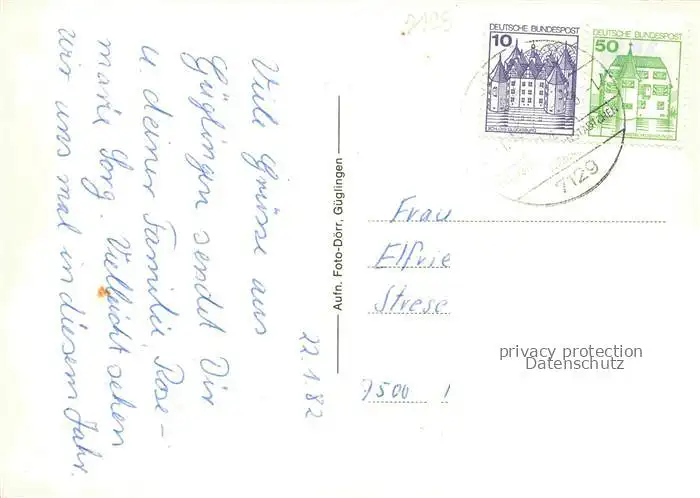 7129
Viele Grüsse aus
Güglingen sendet Dir
u. deiner Familie, Rose-
marie Sorg. Vielleicht sehen
wir uns mal in diesem Jahr.
22.1.82
Aufn. Foto-Dörr, Güglingen
DEUTSCHE BUNDESPOST
10
SCHLOSS GLÜCKSBURG
DEUTSCHE BUNDESPOST
50
7129
Frau
Elfrie
Strese
7500 1
privacy protection
Datenschutz